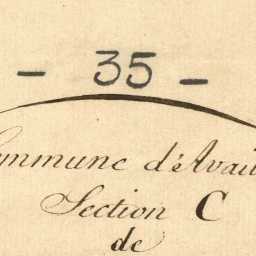 - 35 -
Commune d'Avail
Section C
de